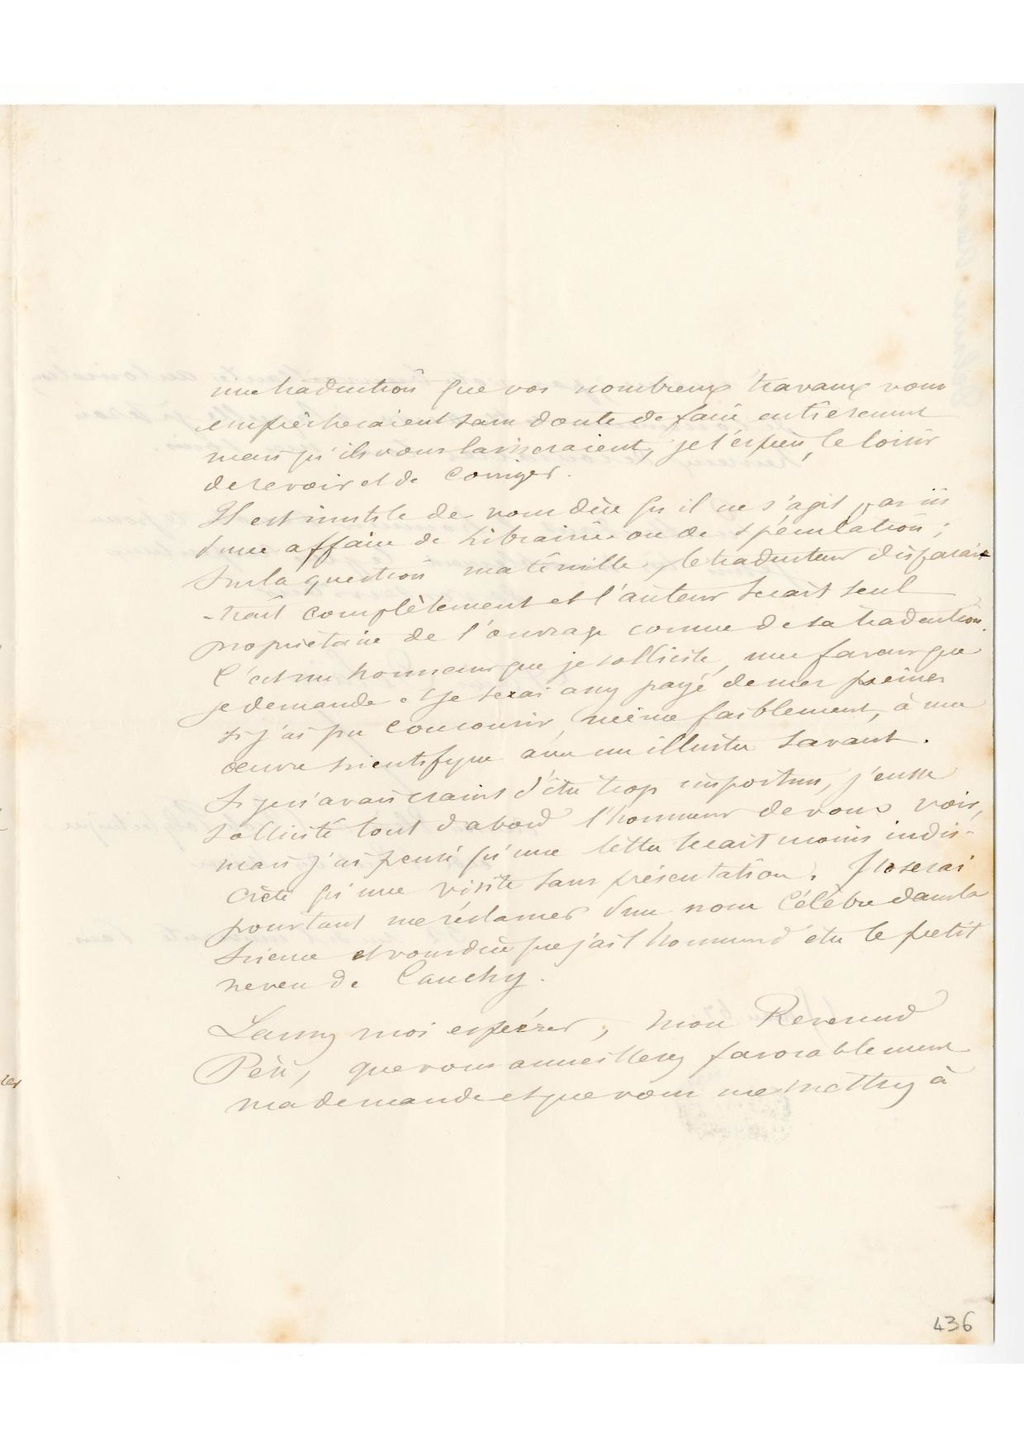 une traduction que vos nombreux travaux vous
empêcheraient sans doute de faire entièrement
mais qu'ils vous laisseraient, je l'espère, le loisir
de revoir et de corriger.
Il est inutile de vous dire qu'il ne s'agit pas ici
d'une affaire de librairie ou de spéculation ;
sur la question matérielle, le traducteur disparaî-
-trait complètement et l'auteur serait seul
propriétaire de l'ouvrage comme de sa traduction.
C'est un honneur que je sollicite, une faveur que
je demande et je serai assez payé de mes peines
si j'ai pu concourir, même faiblement, à une
œuvre scientifique avec un illustre savant.
Si je n'avais craint d'être trop importun, j'eusse
sollicité tout d'abord l'honneur de vous voir,
mais j'ai pensé qu'une lettre serait moins indis-
crète qu'une visite sans présentation. J'oserai
pourtant me réclamer d'un nom célèbre dans la
science et vous dire que j'ai l'honneur d'être le petit
neveu de Cauchy.
Laissez moi espérer, mon Révérend
Père, que vous accueillerez favorablement
ma demande et que vous me mettrez à
436